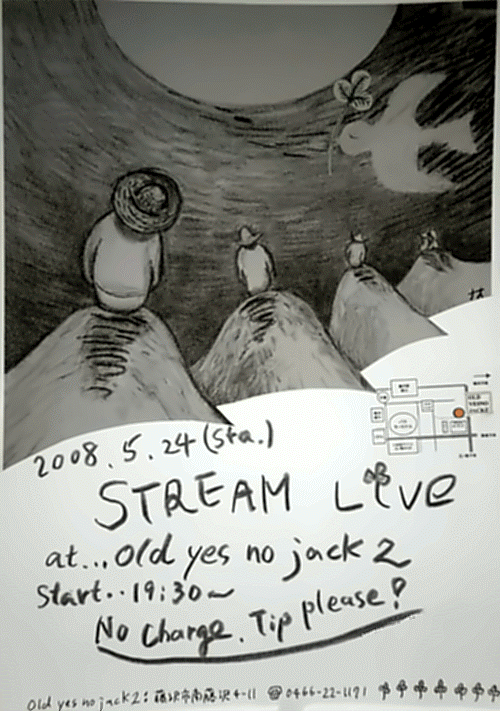 2008.5.24(Sta.)
STREAM Live
at...Old yes no jack 2
Start..19:30~
No Charge. Tip please!
OLD
YESNO
JACK2
Old yes no jack2: 藤沢市南藤沢4-11 ☎0466-22-1171